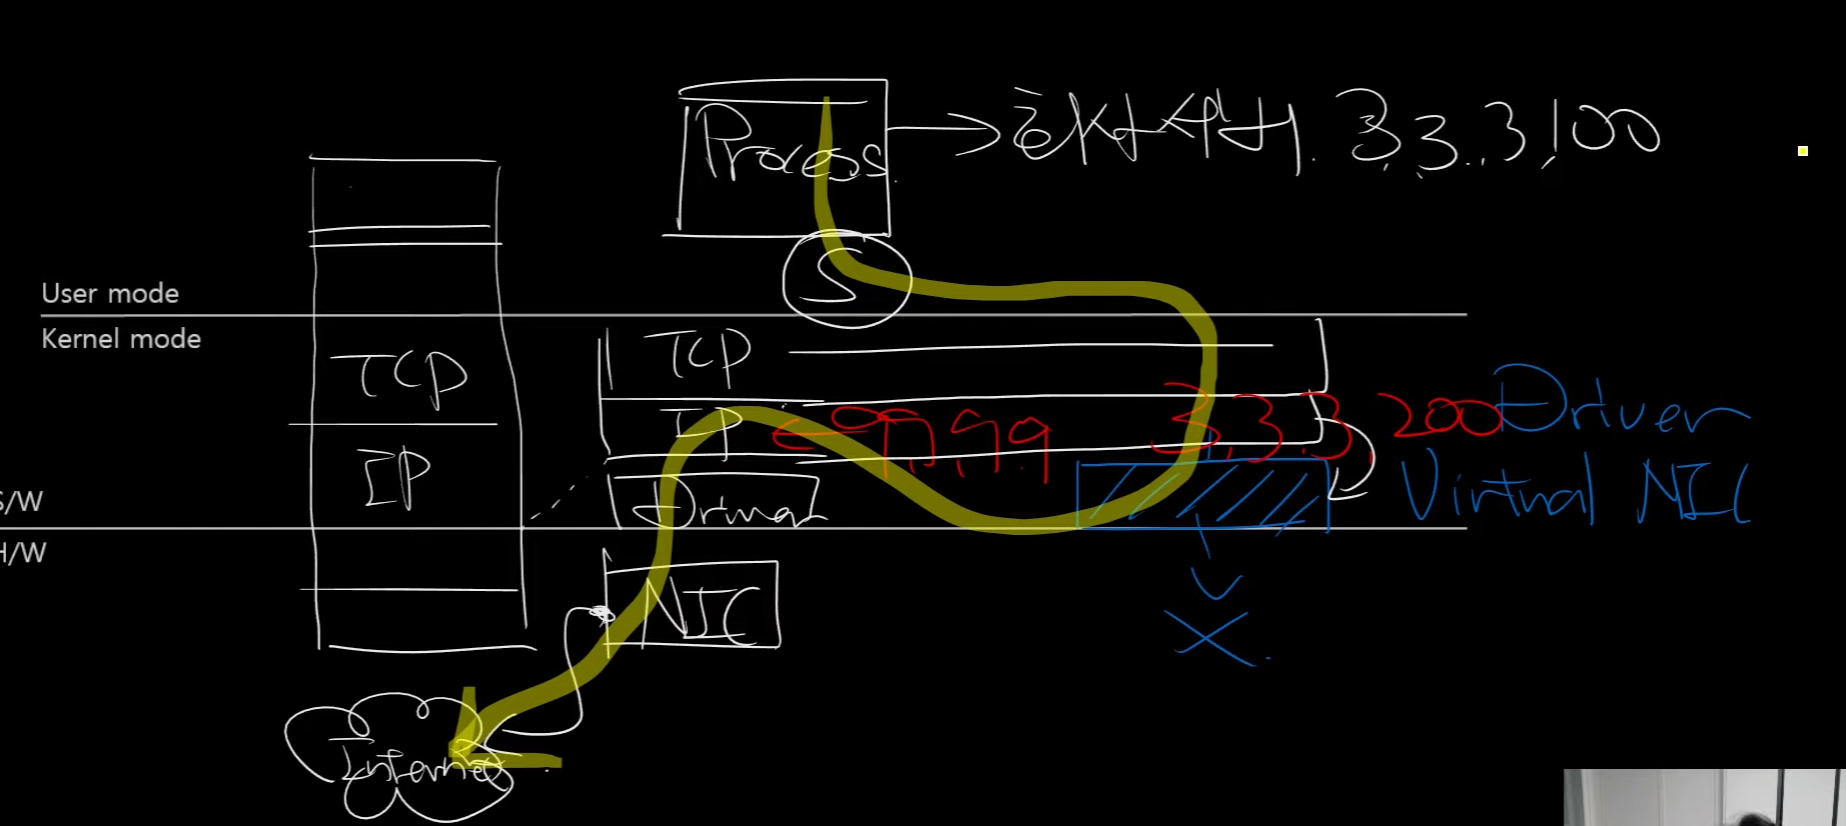 Process
3.3.3.100
S
User mode
Kernel mode
TCP
TCP
IP
IP
9.9.9.9
3.3.3.200
Driver
Virtual NIC
S/W
H/W
NIC
X
Internet